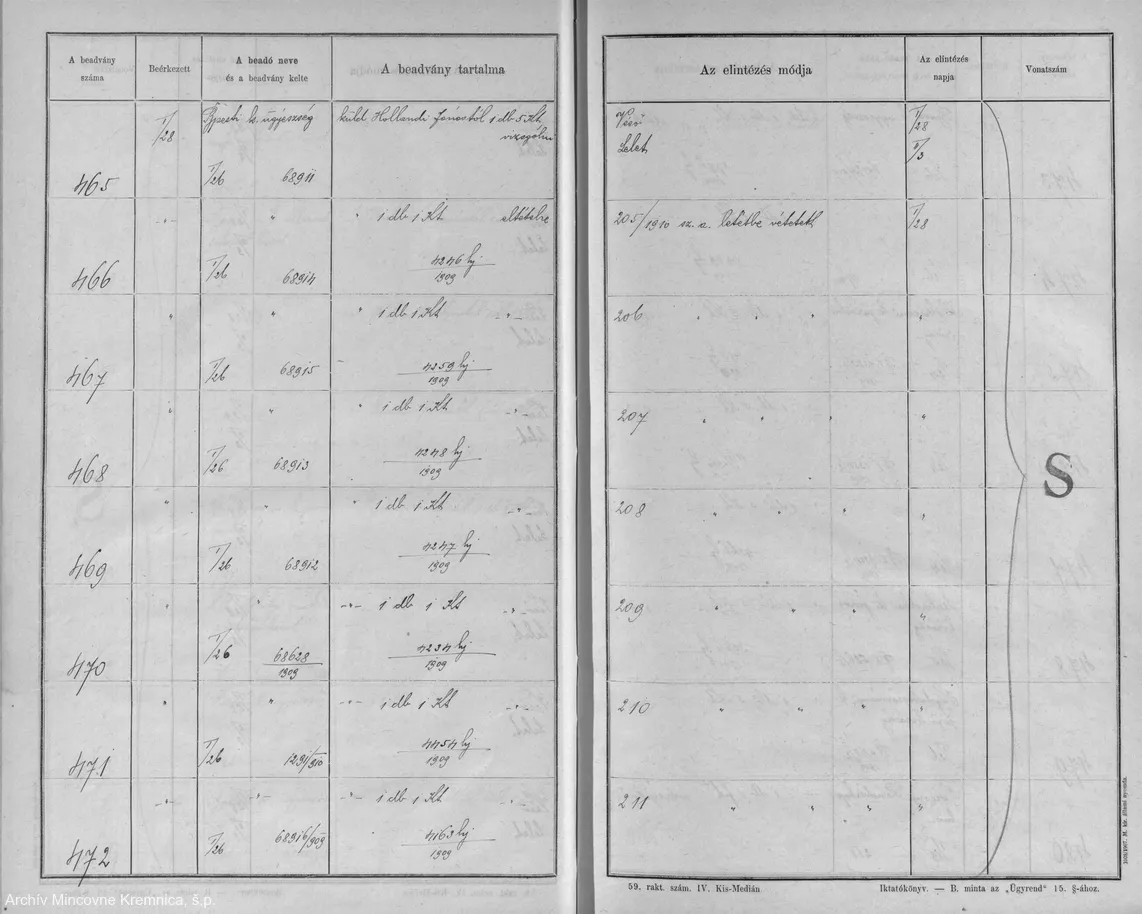 A beadvány száma
Beérkezett
A beadó neve és a beadvány kelte
A beadvány tartalma
Az elintézés módja
Az elintézés napja
Vonatszám
I/28 kir. ügyészség küld Hollandi Jánostól 1 db 5 Kt vizsgálni
465 I/26 68911
Lelet I/28
-"- " " 1 db 1 Kt eltételre
205/1910 sz. a. letétbe vétetett I/28
466 I/26 68914 4246 bj/1909
" " " 1 db 1 Kt -"-
206 " " " "
467 I/26 68915 4259 bj/1909
" " " 1 db 1 Kt -"-
207 " " " "
468 I/26 68913 4248 bj/1909
" " " 1 db 1 Kt -"-
208 " " " "
469 I/26 68912 4247 bj/1909
" " -"- 1 db 1 Kt -"-
209 " " " "
470 I/26 68628/1909 4234 bj/1909
" " -"- 1 db 1 Kt -"-
210 " " " "
471 I/26 1291/910 4454 bj/1909
-"- -"- -"- 1 db 1 Kt -"-
211 " " " "
472 I/26 68916/909 4163 bj/1909
S
59. rakt. szám. IV. Kis-Medián
Iktatókönyv. — B. minta az „Ügyrend" 15. §-ához.
Archív Mincovne Kremnica, š.p.